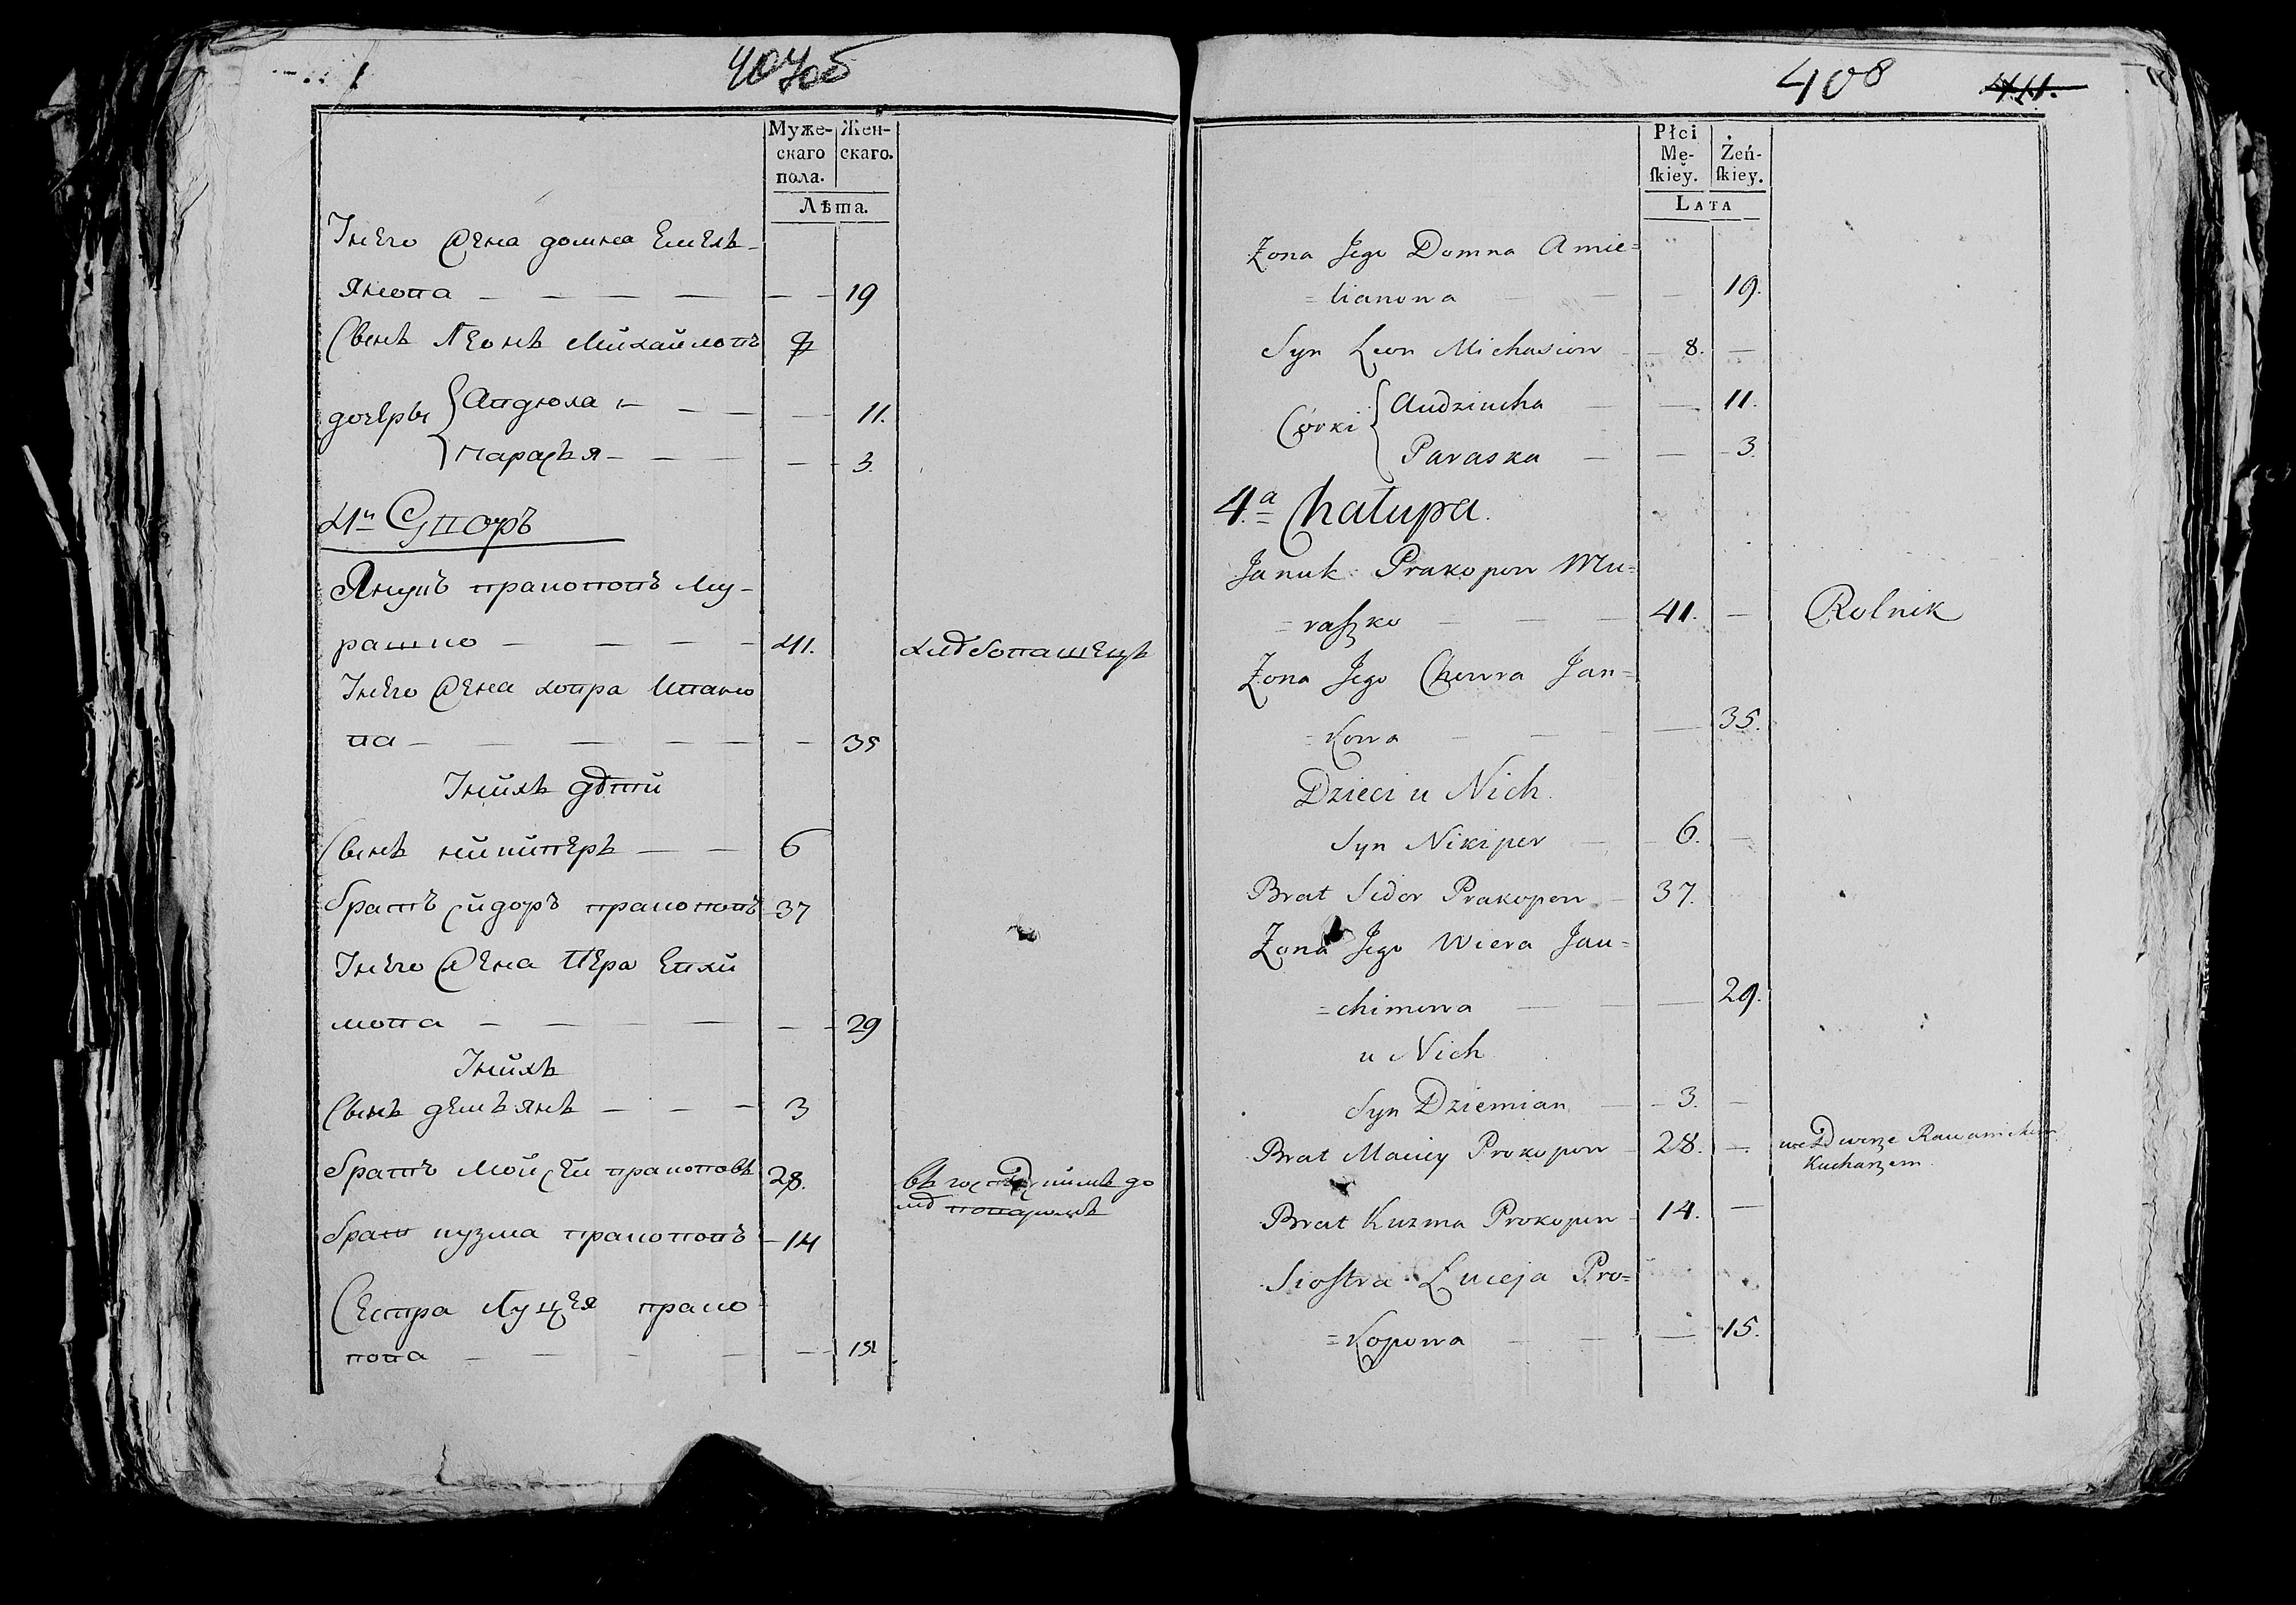 407об
Муже- Жен-
скаго скаго.
пола.
Лѣта.
Унего жена домна Емель-
янова — — — — — — 19
Сынъ Леонъ Михайловъ 8
дочеры { Авдюла — — — — 11.
Парасья — — — — 3.
4й Дворъ
Янукъ праkоповъ Му-
рашко — — — — 41. хлѣбопашецъ
Унего жена ховра Иванко
ва — — — — — — 35
Унихъ дѣти
Сынъ никиперъ — — 6
братъ сидоръ прокоповъ 37
Унего жена Вера Евхи
мова — — — — — 29
Унихъ
Сынъ демьянъ — — — 3
братъ Мойсей прокоповъ 28. въ
мѣ поваромъ
брат кузма прокоповъ 14
Сестра Луцея проко
пова — — — — — 15
408 411.
Płci
Mę- Żeń-
skiey. skiey.
LATA
Żona Jego Domna Amie=
=lianowa — — — 19.
Syn Leon Michasiow — 8. —
Córki { Audziucha — — 11.
Paraska — — 3.
4.a Chałupa.
Januk Prakopow Mu=
=raszko — — — 41. — Rolnik
Żona Jego Chowra Jan=
=kowa — — — — 35.
Dzieci u Nich.
Syn Nikiper — 6. —
Brat Sidor Prakopow — 37.
Żona Jego Wiera Jau=
=chimowa — — — 29.
u Nich
Syn Dziemian — 3. —
Brat Maciey Prokopow — 28. — we Dworze Rawanickim
Kucharzem
Brat Kuzma Prokopow — 14. —
Siostra Łuceja Pro=
=kopowa — — — 15.